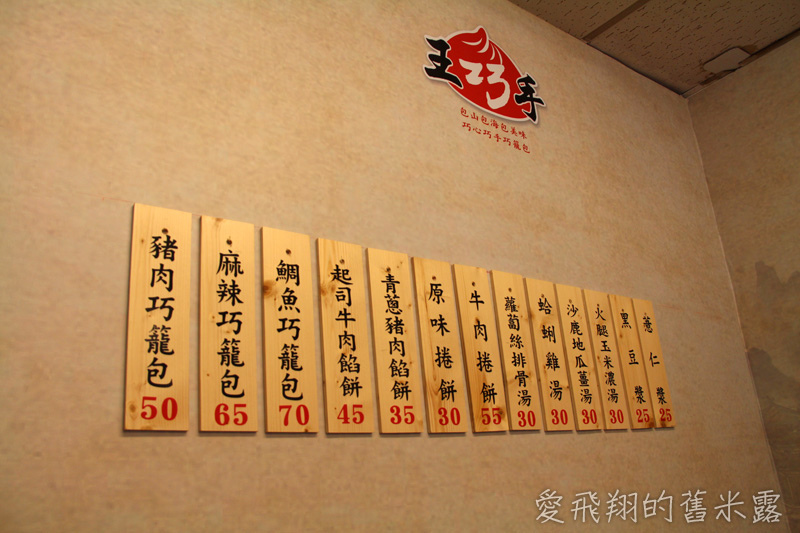 王巧手
包山包海包美味
巧心巧手巧籠包
豬肉巧籠包 50
麻辣巧籠包 65
鯛魚巧籠包 70
起司牛肉餡餅 45
青蔥豬肉餡餅 35
原味捲餅 30
牛肉捲餅 55
蘿蔔絲排骨湯 30
蛤蜊雞湯 30
沙鹿地瓜薑湯 30
火腿玉米濃湯 30
黑豆漿 25
薏仁漿 25
愛飛翔的舊米露